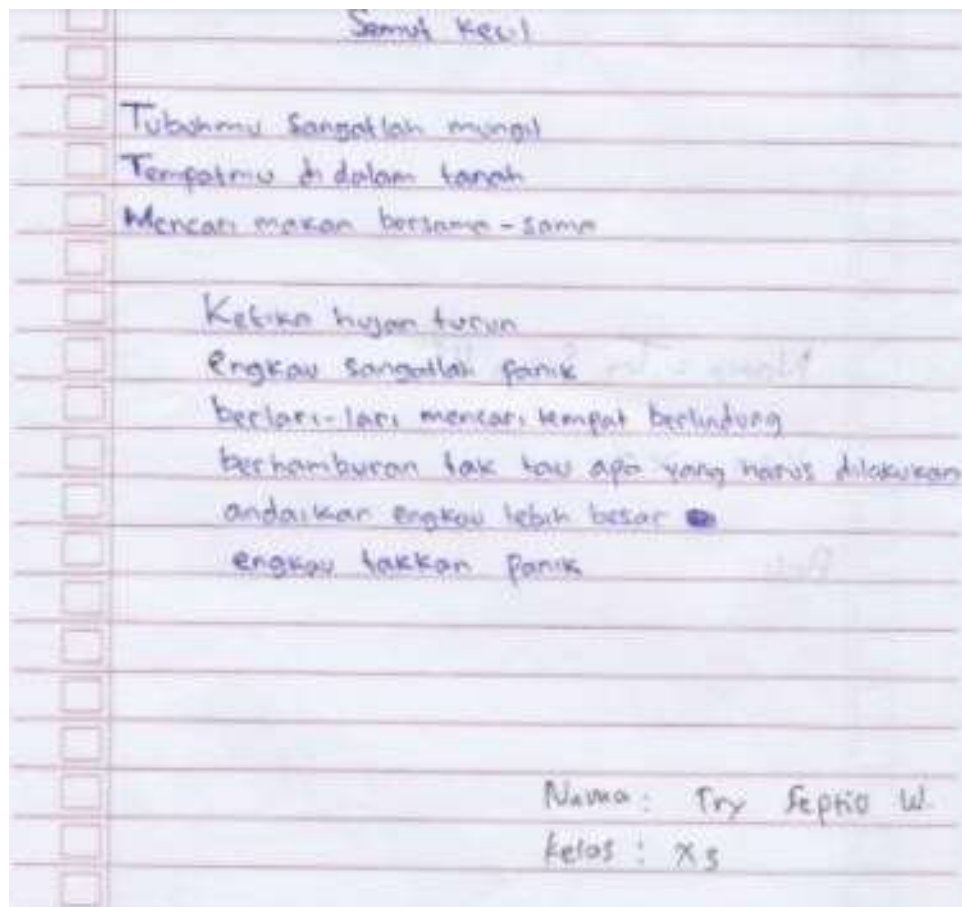 Semut Kecil
Tubuhmu Sangatlah mungil
Tempatmu di dalam tanah
Mencari makan bersama-sama
Ketika hujan turun
engkau sangatlah panik
berlari-lari mencari tempat berlindung
berhamburan tak tau apa yang harus dilakukan
andaikan engkau lebih besar
engkau takkan panik
Nama : Try Septio W.
kelas : X